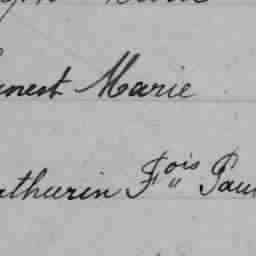 Ernest Marie
Mathurin Fois Paul